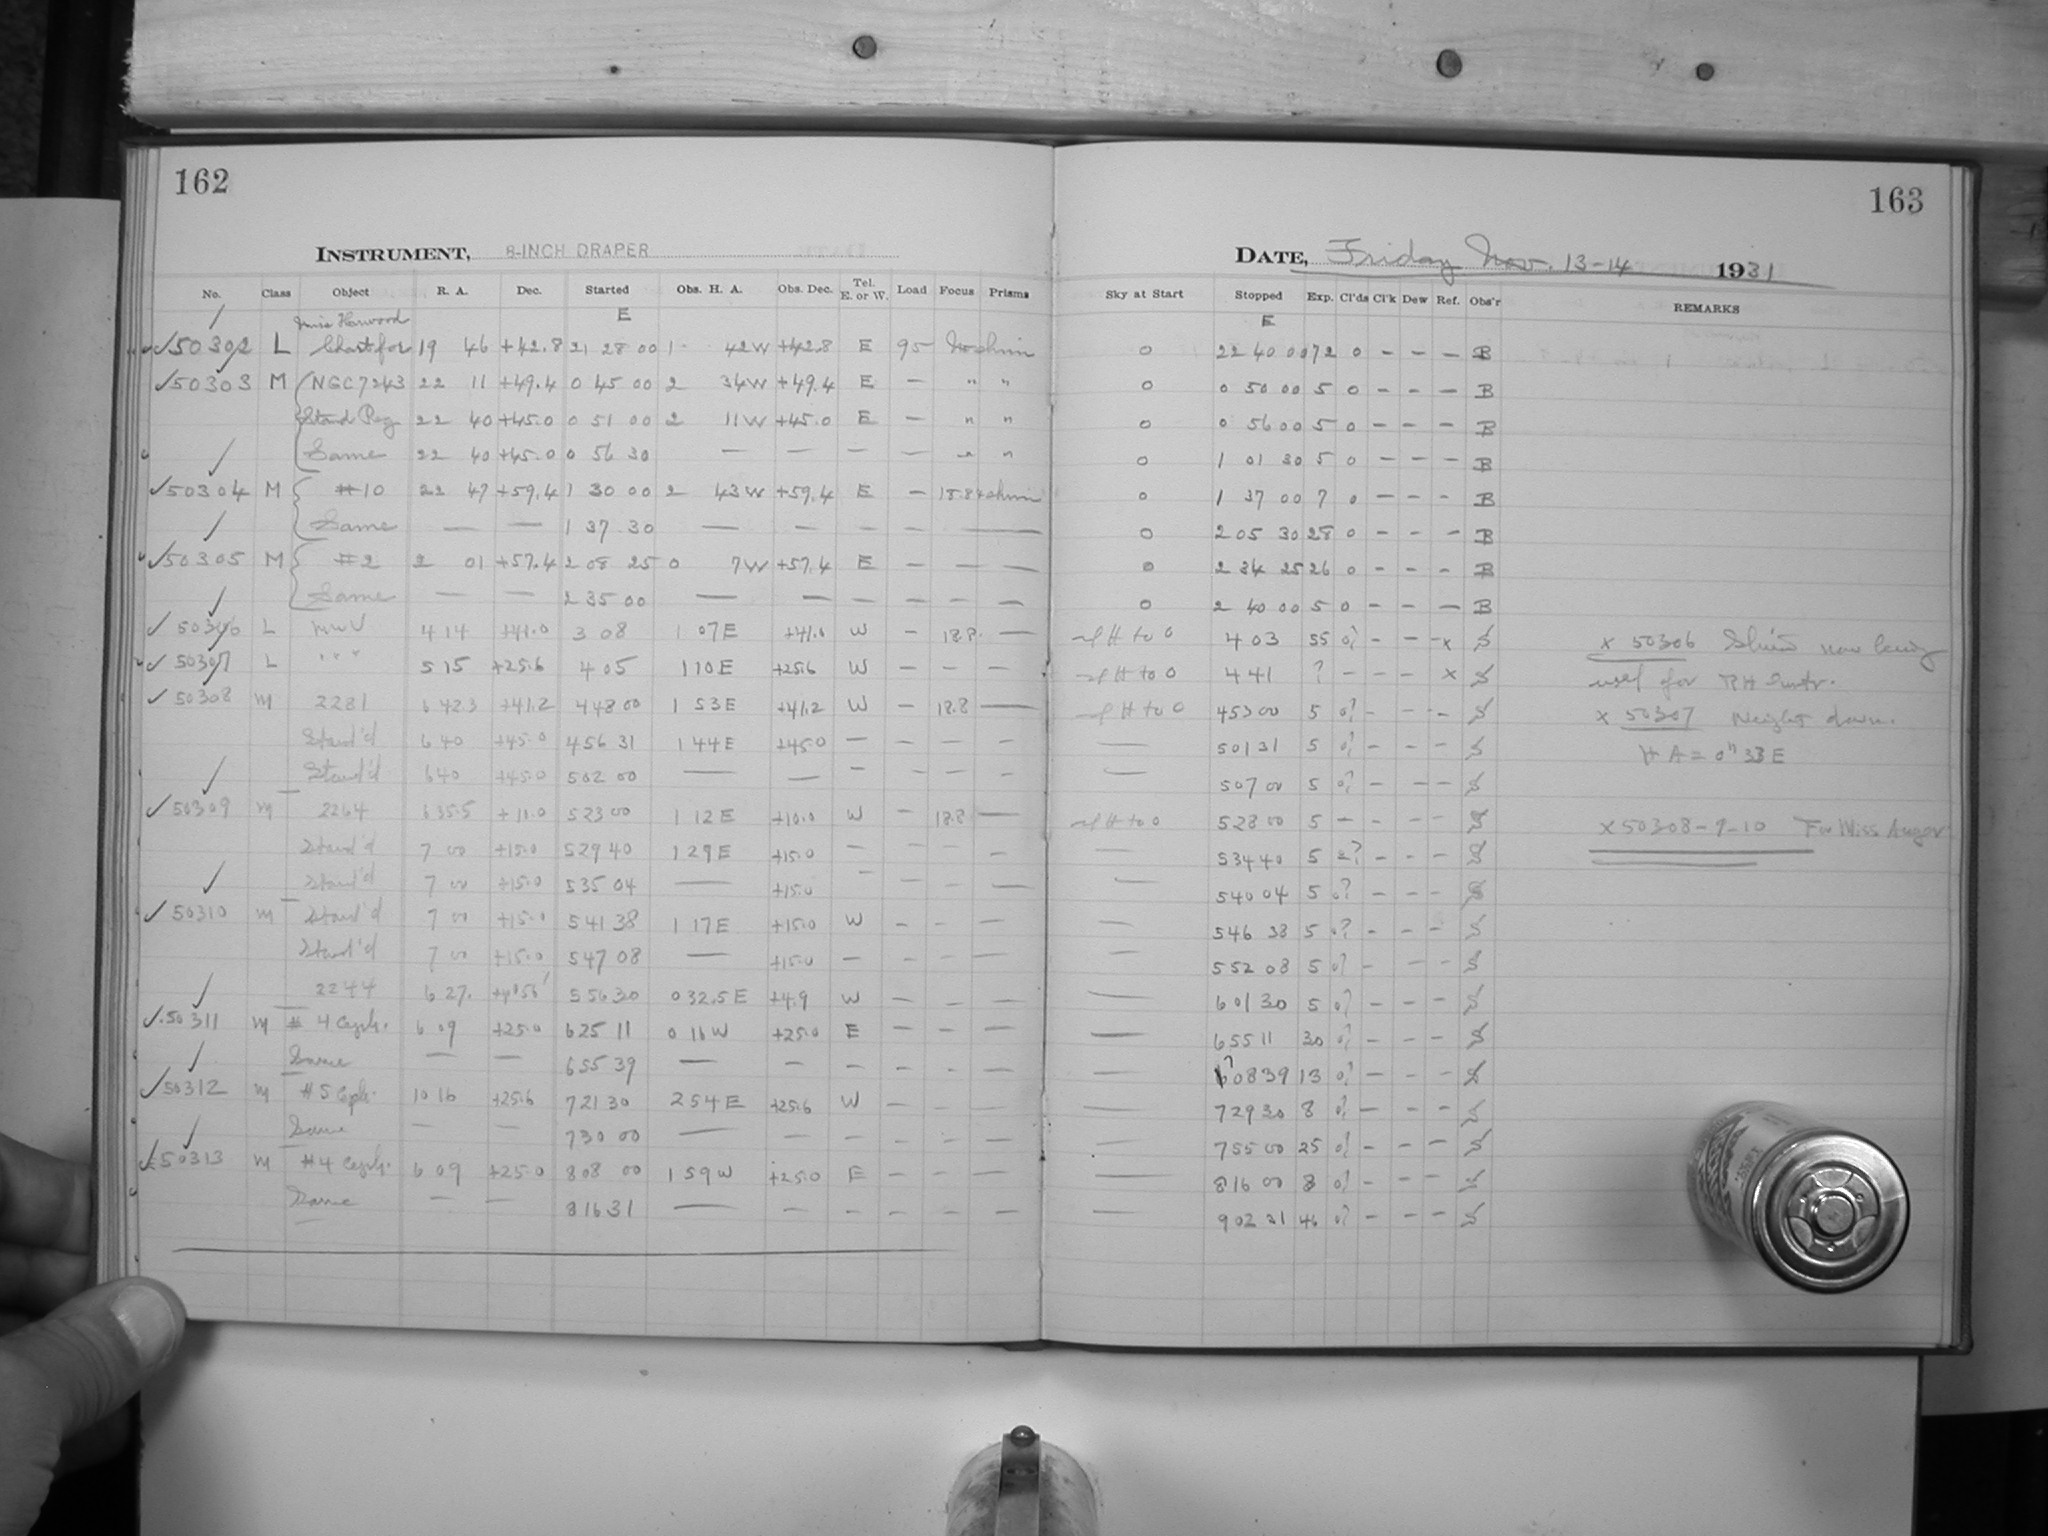 162
163
INSTRUMENT, 8-INCH DRAPER
DATE, Friday Nov. 13-14 1931
No. Class Object R. A. Dec. Started Obs. H. A. Obs. Dec. Tel. E. or W. Load Focus Prisms Sky at Start Stopped Exp. Cl'ds Cl'k Dew Ref. Obs'r REMARKS
E E
Miss Harwood
50302 L Chart for 19 46 +42.8 21 28 00 1 42W +42.8 E 95 0 22 40 00 72 0 — — — B
50303 M NGC 7243 22 11 +49.4 0 45 00 2 34W +49.4 E — " " 0 0 50 00 5 0 — — — B
Stand Reg. 22 40 +45.0 0 51 00 2 11W +45.0 E — " " 0 0 56 00 5 0 — — — B
Same 22 40 +45.0 0 56 30 — — — — " " 0 1 01 30 5 0 — — — B
50304 M #10 22 47 +59.4 1 30 00 2 43W +59.4 E — 18.8 0 1 37 00 7 0 — — — B
Same — — 1 37 30 — — — — — 0 2 05 30 28 0 — — — B
50305 M #2 2 01 +57.4 2 08 25 0 7W +57.4 E — — — 0 2 34 25 26 0 — — — B
Same — — 2 35 00 — — — — — — 0 2 40 00 5 0 — — — B
50306 L MWV 4 14 +41.0 3 08 1 07E +41.0 W — 18.8 — H to 0 4 03 55 0? — — — x S x 50306
50307 L " " " 5 15 +25.6 4 05 1 10E +25.6 W — — — H to 0 4 41 ? — — — x S used for RH
50308 M 2281 6 42.3 +41.2 4 48 00 1 53E +41.2 W — 18.8 — H to 0 4 53 00 5 0? — — — S x 50307 Weight down.
Stand'd 6 40 +45.0 4 56 31 1 44E +45.0 — — — — — 5 01 31 5 0? — — — S H A = 0h 33 E
Stand'd 6 40 +45.0 5 02 00 — — — — — — — 5 07 00 5 0? — — — S
50309 M 2264 6 35.5 +10.0 5 23 00 1 12E +10.0 W — 18.8 — H to 0 5 28 00 5 — — — — S x 50308-9-10 For Miss
Stand'd 7 00 +15.0 5 29 40 1 29E +15.0 — — — — — 5 34 40 5 ? — — — S
Stand'd 7 00 +15.0 5 35 04 — +15.0 — — — — — 5 40 04 5 0? — — — S
50310 M Stand'd 7 00 +15.0 5 41 38 1 17E +15.0 W — — — — 5 46 38 5 0? — — — S
Stand'd 7 00 +15.0 5 47 08 — +15.0 — — — — — 5 52 08 5 0? — — — S
2244 6 27. 5 56 30 0 32.5E +4.9 W — — — — 6 01 30 5 0? — — — S
50311 M # 4 Ceph. 6 09 +25.0 6 25 11 0 16W +25.0 E — — — — 6 55 11 30 0? — — — S
Same — — 6 55 39 — — — — — — — 7 08 39 13 0? — — — S
50312 M # 5 Ceph. 10 16 +25.6 7 21 30 2 54E +25.6 W — — — — 7 29 30 8 0? — — — S
Same — — 7 30 00 — — — — — — — 7 55 00 25 0? — — — S
50313 M #4 Ceph. 6 09 +25.0 8 08 00 1 59W +25.0 E — — — — 8 16 00 8 0? — — — S
Same — — 8 16 31 — — — — — — — 9 02 31 46 0? — — — S